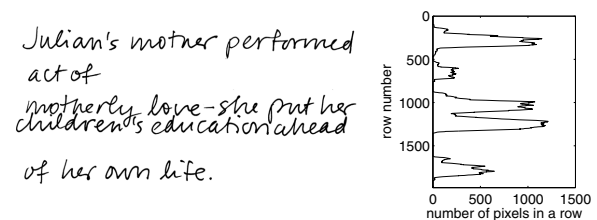 Julian's mother performed
act of
motherly love-she put her
children's education ahead
of her own life.
0
500
1000
1500
row number
0 500 1000 1500
number of pixels in a row